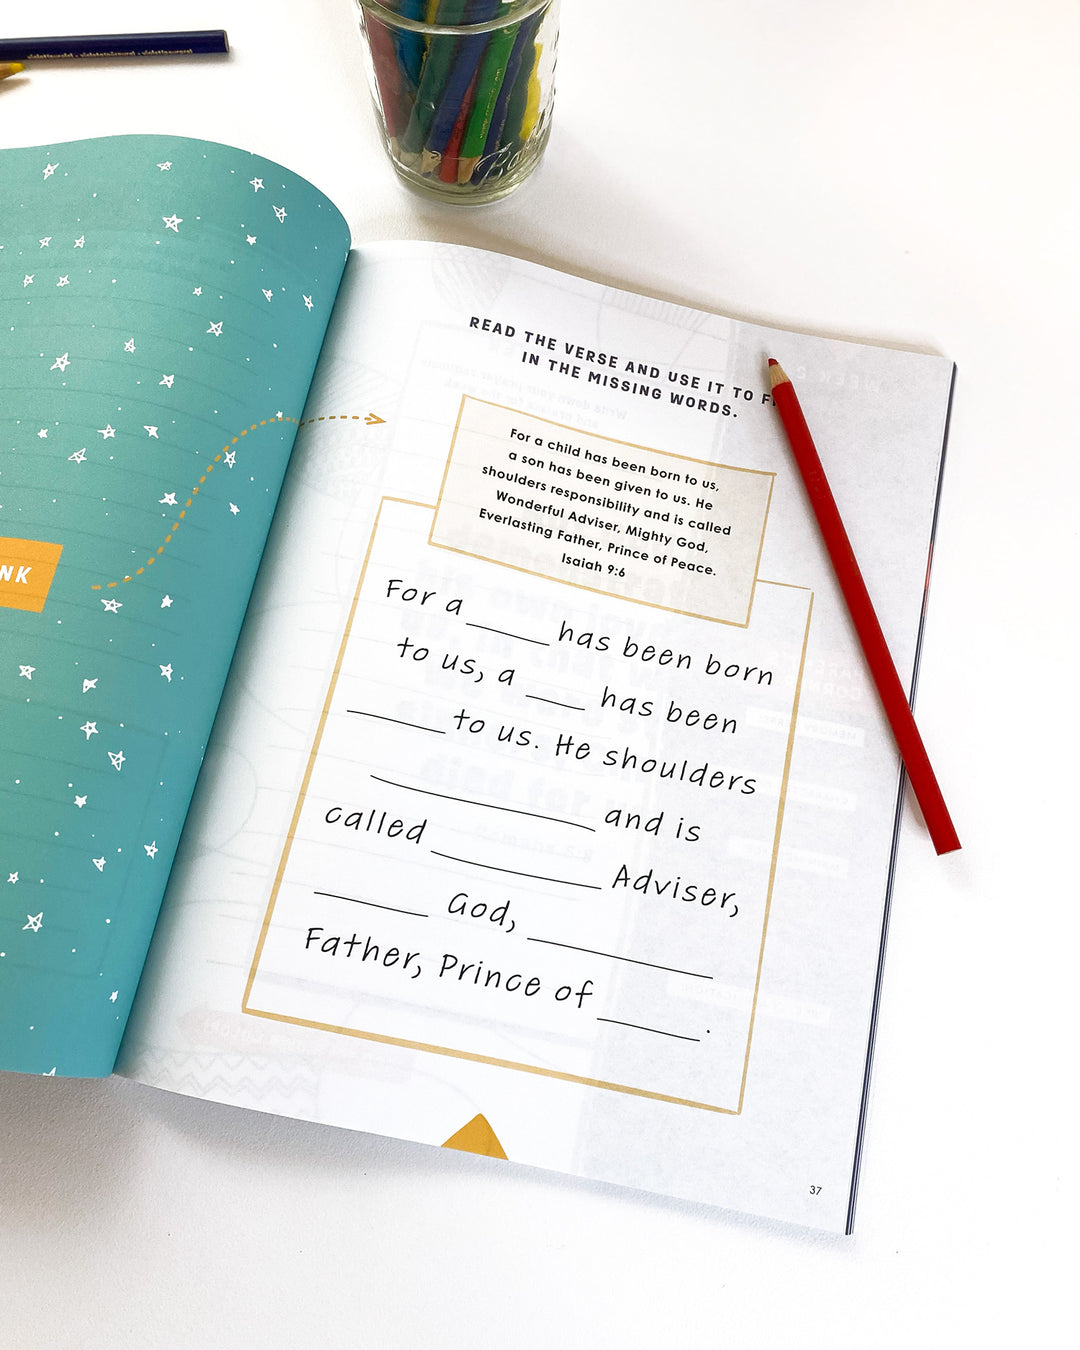 NK
READ THE VERSE AND USE IT TO
IN THE MISSING WORDS.
For a child has been born to us,
a son has been given to us. He
shoulders responsibility and is called
Wonderful Adviser, Mighty God,
Everlasting Father, Prince of Peace.
Isaiah 9:6
For a ______ has been born
to us, a ____ has been
______ to us. He shoulders
______________ and is
called ___________ Adviser,
_______ God, ___________
Father, Prince of ______.
37